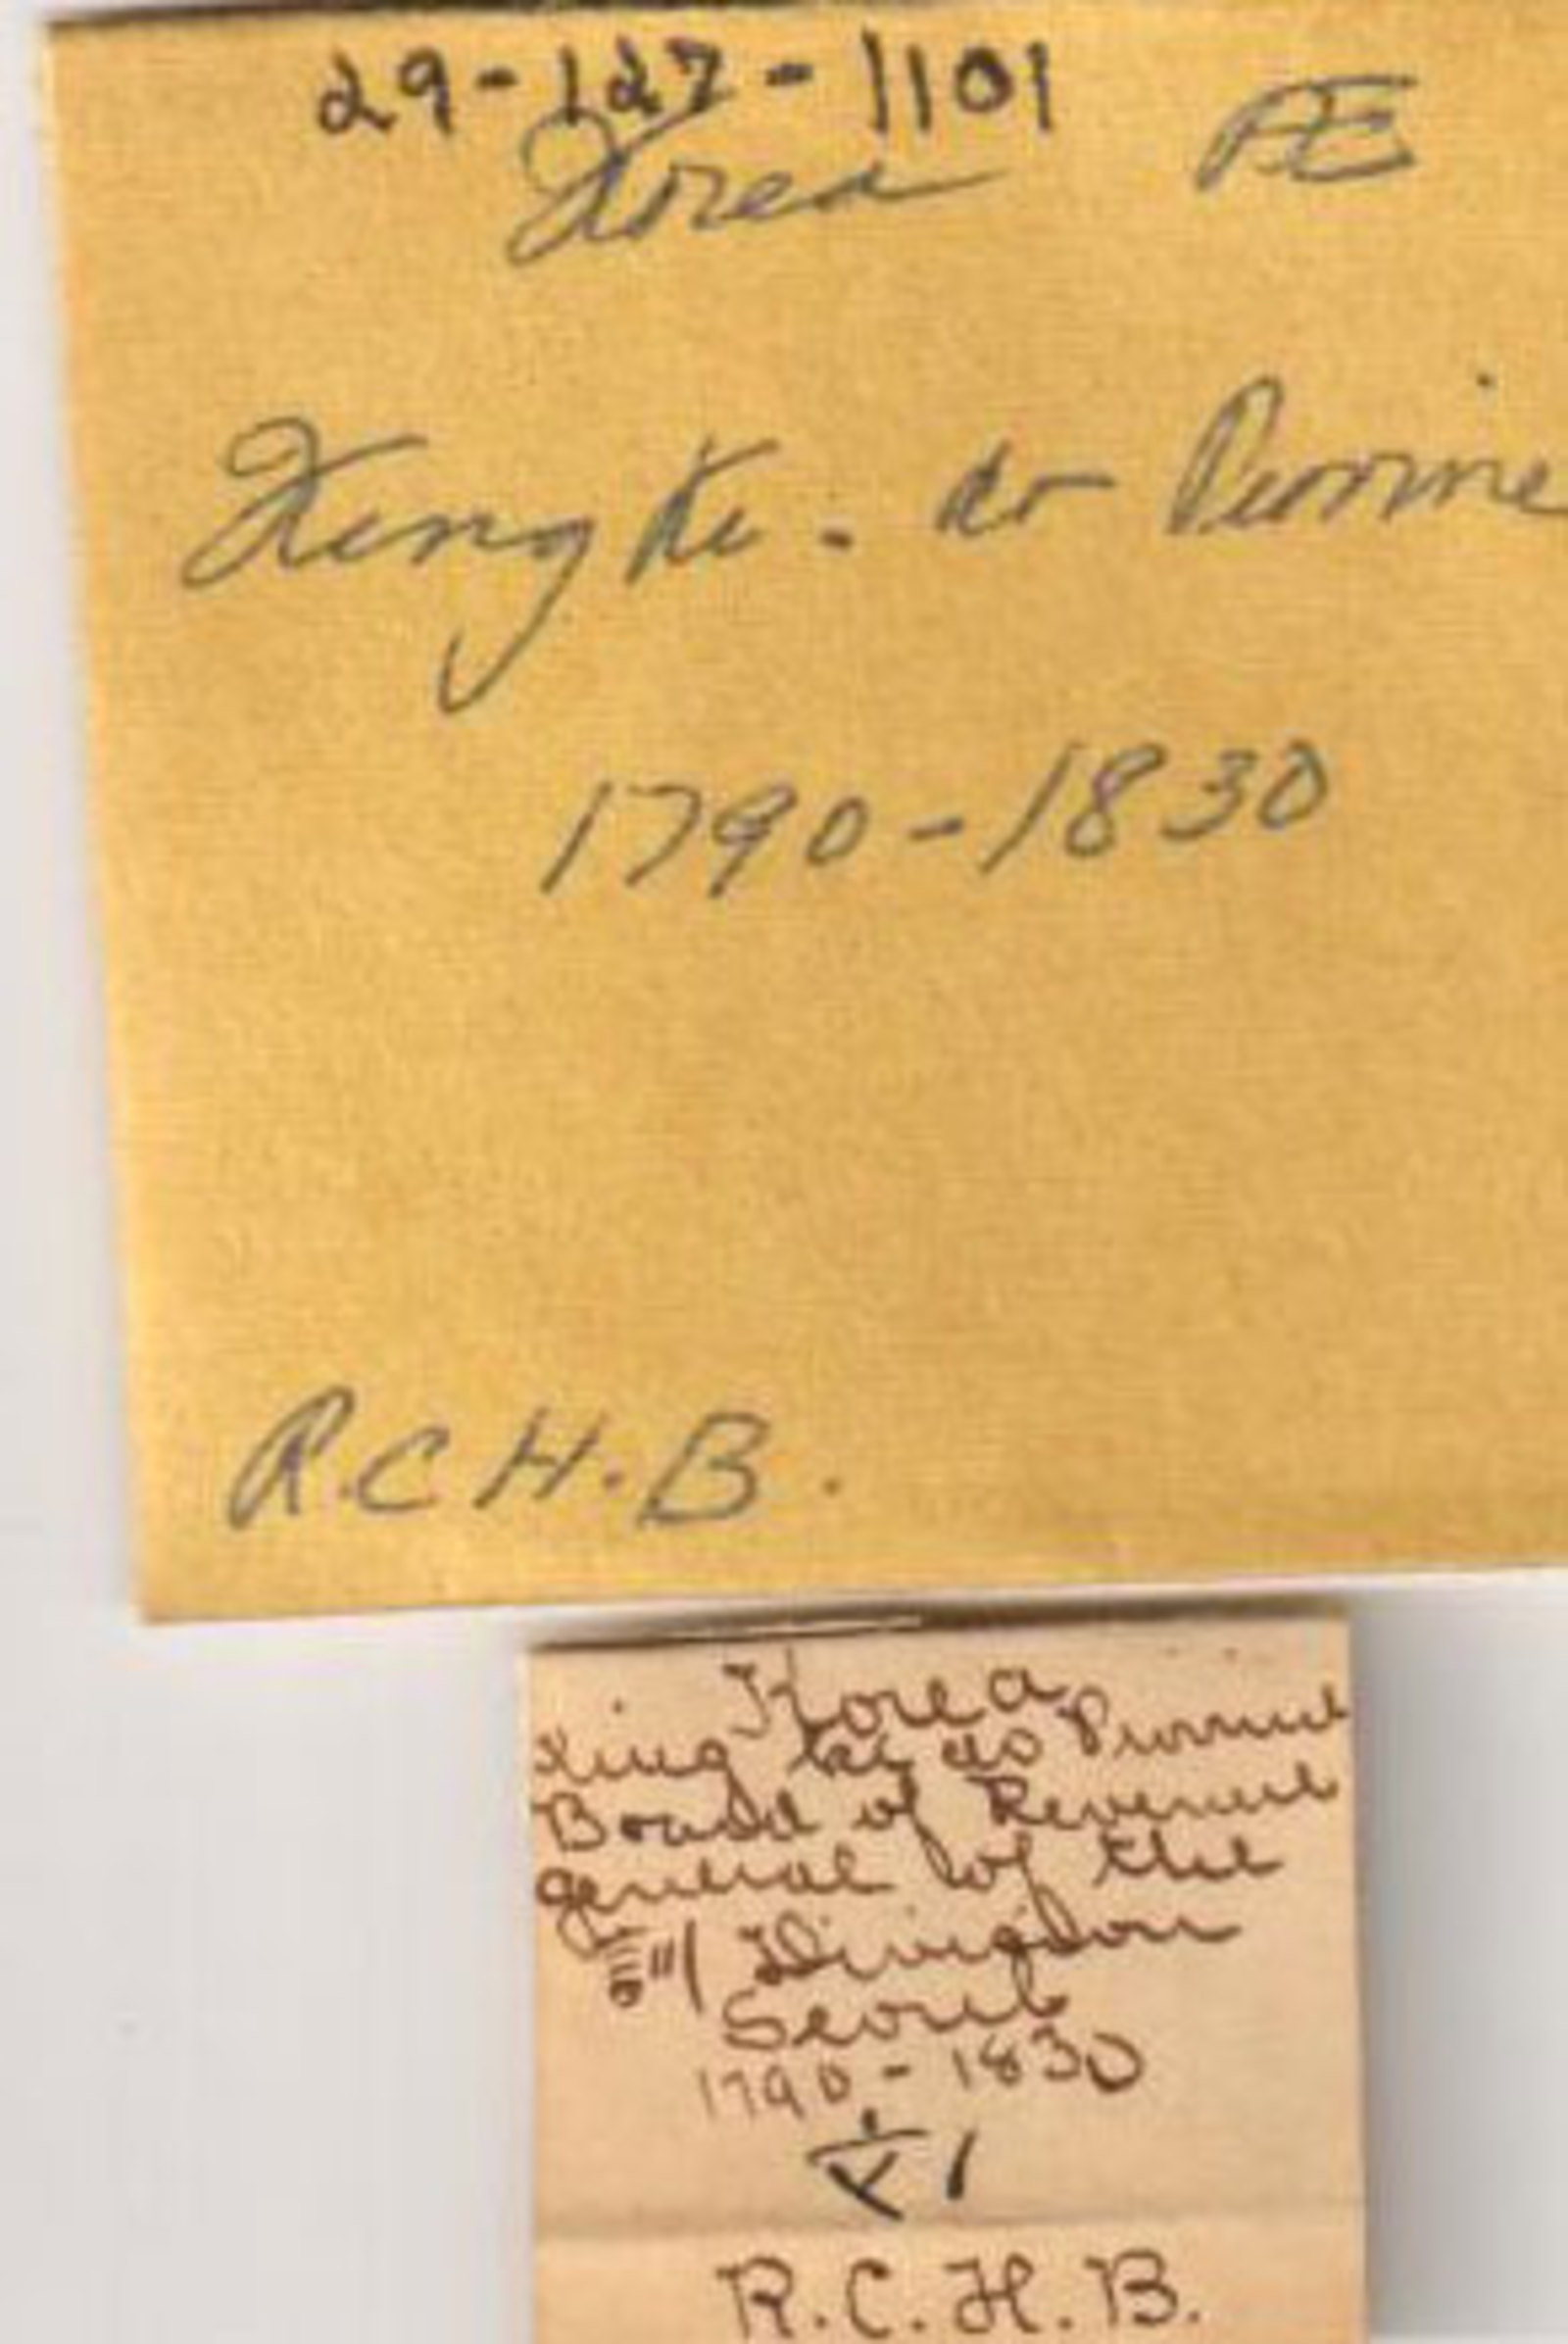 29-127-1101
Korea PE
King Ki - do Provine
1790-1830
R.C H. B.
Korea
King Ki do Provinul
Board of Revenue
general of the
Division
Seoul
1790-1830
六 1
R.C.H.B.